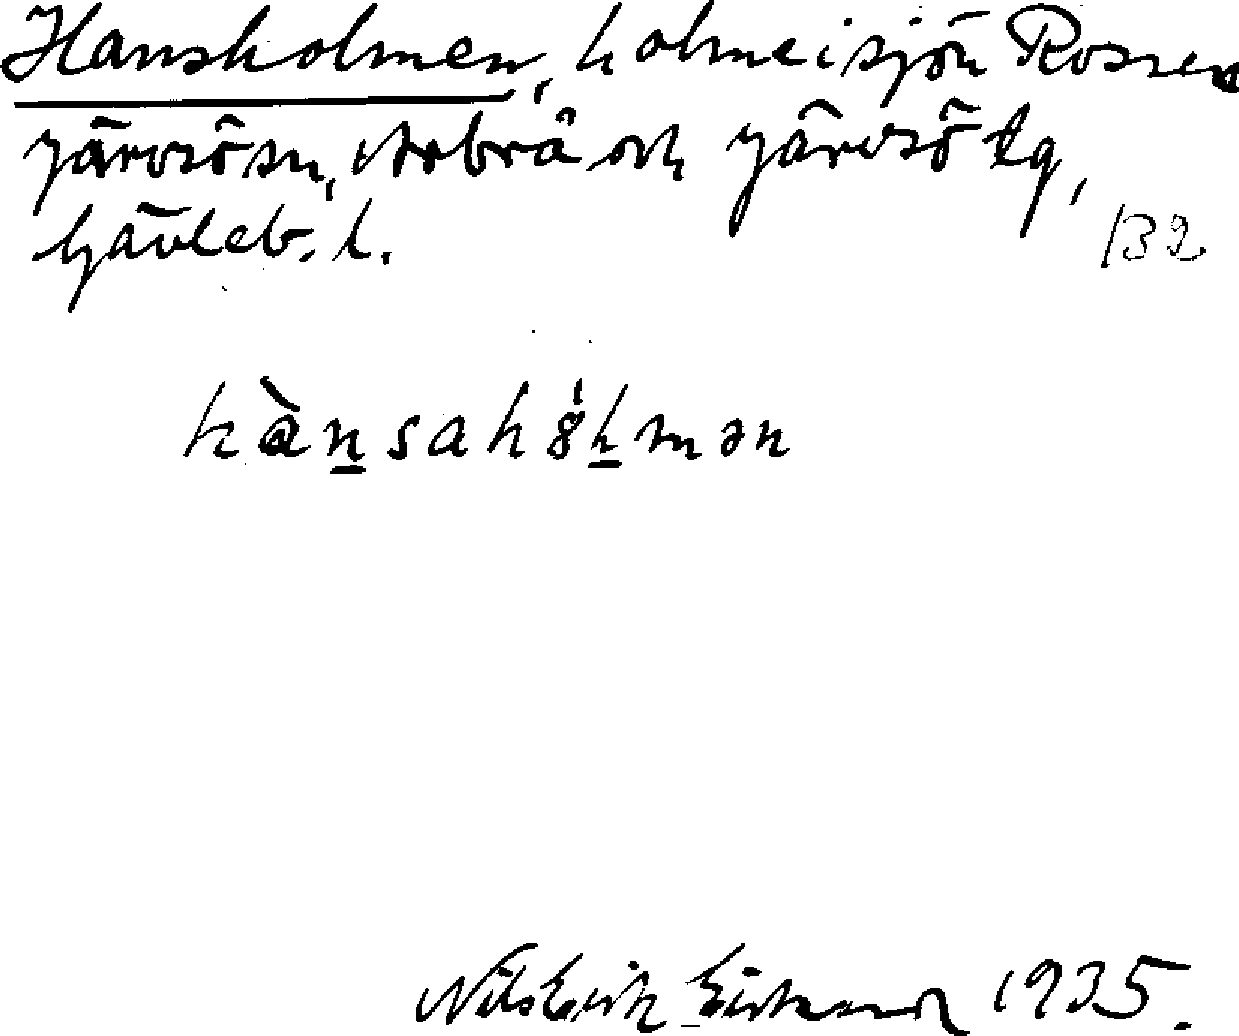 Hansholmen, holme i sjön Rossen
Järvsö sn, Arbrå och Järvsö tg,
Gävleb. l.
132
hànsahölmən
Nils Erik 1935.